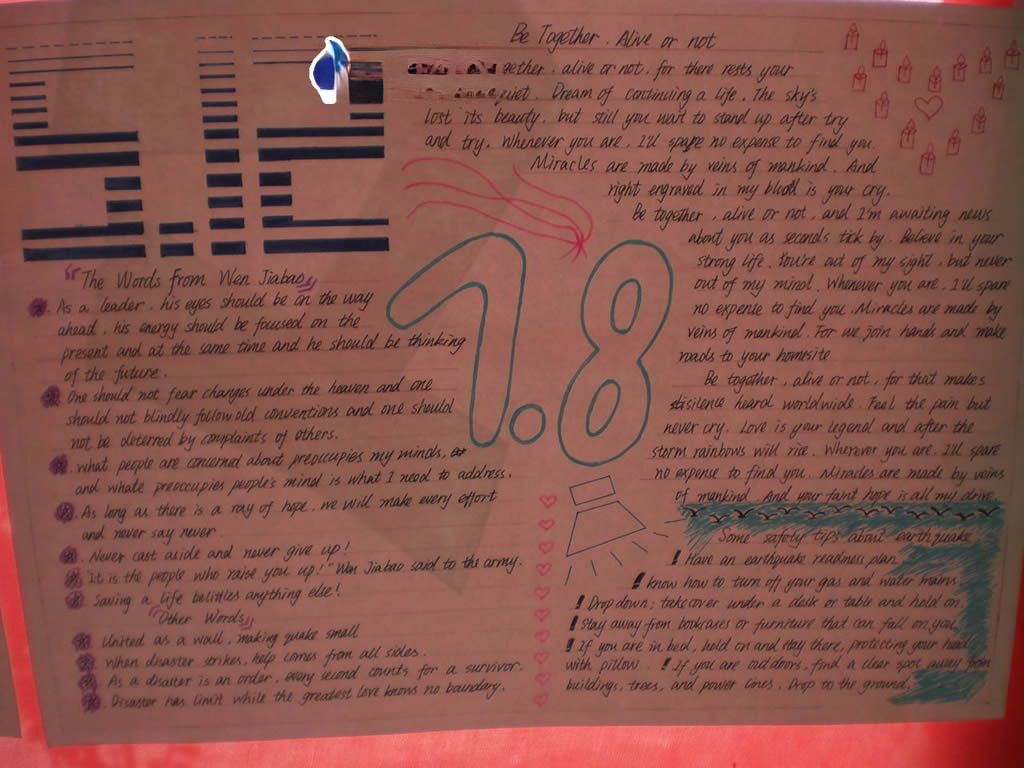 5.12
Be Together, Alive or not
gether, alive or not, for there rests your
quiet. Dream of continuing a life, The sky's
lost its beauty, but still you want to stand up after try
and try. Whenever you are, I'll spare no expense to find you.
Miracles are made by veins of mankind. And
right engraved in my blood is your cry.
Be together, alive or not, and I'm awaiting news
about you as seconds tick by. Believe in your
strong life. You're out of my sight, but never
out of my mind. Whenever you are, I'll spare
no expense to find you. Miracles are made by
veins of mankind. For we join hands and make
roads to your homesite
Be together, alive or not, for that makes
silence heard worldwide. Feel the pain but
never cry. Love is your legend and after the
storm rainbows will rise. Wherever you are, I'll spare
no expense to find you. Miracles are made by veins
of mankind. And your faint hope is all my drive.
7.8
"The Words from Wen Jiabao"
As a leader, his eyes should be on the way
ahead, his energy should be focused on the
present and at the same time and he should be thinking
of the future.
One should not fear changes under the heaven and one
should not blindly follow old conventions and one should
not be deterred by complaints of others.
What people are concerned about preoccupies my minds,
and whate preoccupies people's mind is what I need to address.
As long as there is a ray of hope, we will make every effort
and never say never.
Never cast aside and never give up!
"It is the people who raise you up!" Wen Jiabao said to the army.
Saving a life belittles anything else!
"Other Words"
United as a wall, making quake small
When disaster strikes, help comes from all sides.
As a disaster is an order, every second counts for a survivor.
Disaster has limit while the greatest love knows no boundary.
Some safety tips about earthquake
! Have an earthquake readiness plan
! know how to turn off your gas and water mains.
! Drop down; take cover under a desk or table and hold on.
! Stay away from bookcases or furniture that can fall on you.
! If you are in bed, hold on and stay there, protecting your head
with pillow. ! If you are outdoors, find a clear spot away from
buildings, trees, and power lines. Drop to the ground.